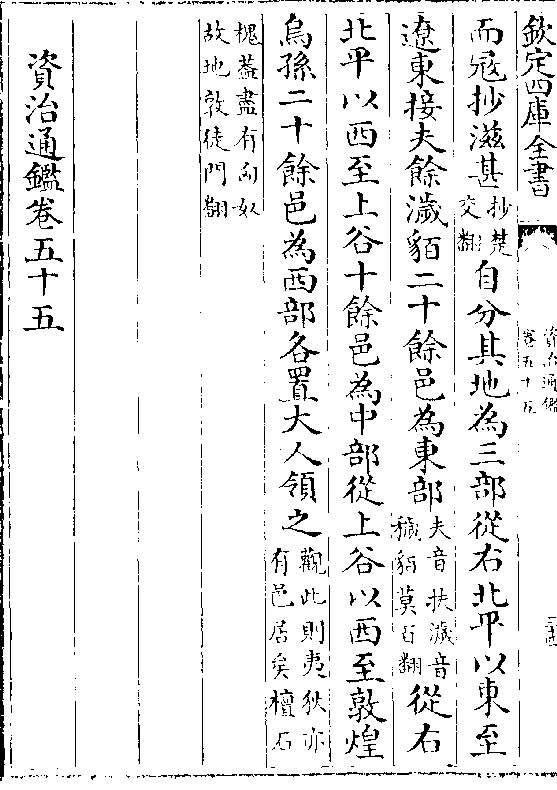 欽定四庫全書
資治通鑑
卷五十五
而寇抄滋甚抄楚交翻自分其地為三部從右北平以東至
遼東接夫餘濊貊二十餘邑為東部夫音扶濊音穢貊莫百翻從右
北平以西至上谷十餘邑為中部從上谷以西至敦煌
烏孫二十餘邑為西部各置大人領之觀此則夷狄亦有邑居矣檀石
槐葢盡有匈奴故地敦徒門翻
資治通鑑卷五十五